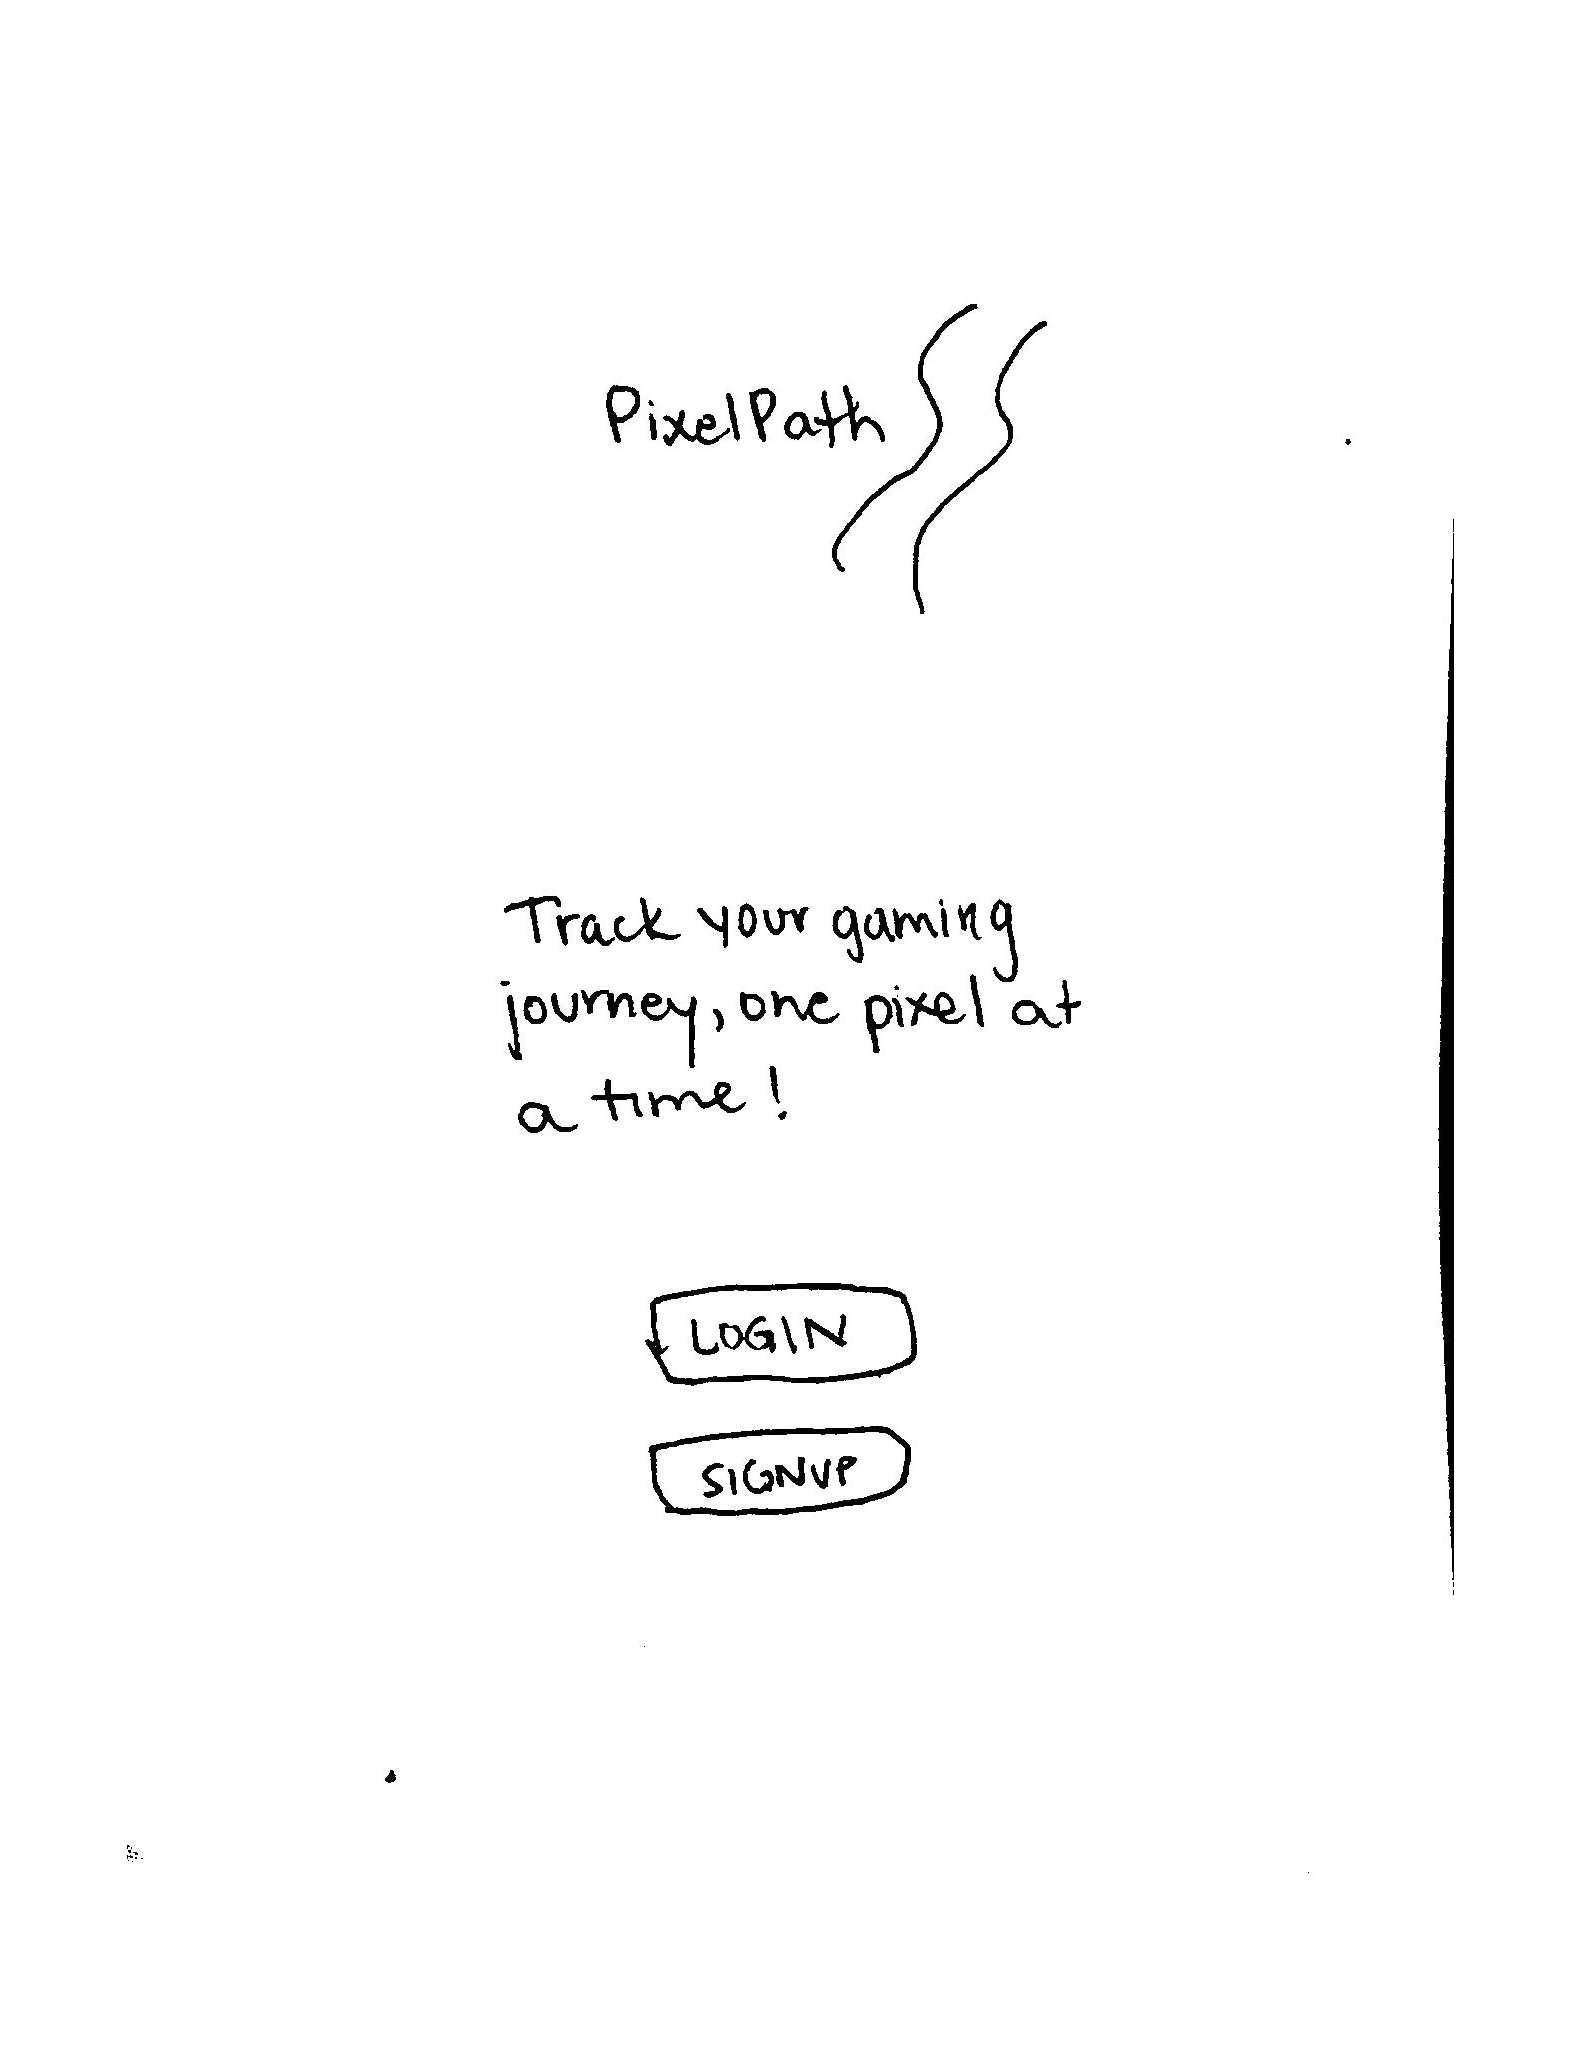 PixelPath
Track your gaming
journey, one pixel at
a time!
LOGIN
SIGNUP